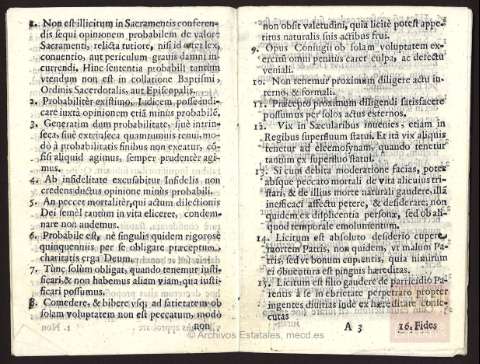 1. Non est illicitum in Sacramentis conferen-
dis sequi opinionem probabilem de valore
Sacramenti, relicta tutiore, nisi id vetet lex,
conuentio, aut periculum grauis damni in-
currendi. Hinc sententia probabili tantum
vtendum non est in collatione Baptismi,
Ordinis Sacerdotalis, aut Episcopalis.
2. Probabiliter existimo, Iudicem posse iudi-
care iuxta opinionem etiã minus probabilé.
3. Generatim dum probabilitate, siuè intrin-
seca, siuè extrinseca quantumuis tenui, mo-
dò à probabilitatis finibus non exeatur, cõ-
fisi aliquid agimus, semper prudenter agi-
mus.
4. Ab infidelitate excusabitur Infidelis non
credens ductus opinione minùs probabili.
5. An peccet mortaliter, qui actum dilectionis
Dei semel tantùm in vita eliceret, condem-
nare non audemus.
6. Probabile est, nè singulis quidem rigorosè
quinquenniis per se obligare præceptum
charitatis erga Deum.
7. Tũnc solùm obligat, quando tenemur iusti-
ficari, & non habemus aliam viam, qua iusti-
ficari possumus.
8. Comedere, & bibere vsq; ad satietatem ob
solam voluptatem non est peccatum, modò
non
non obsit valetudini, quia licitè potest appe-
titus naturalis suis actibus frui.
9. Opus Coniugij ob solam voluptatem ex-
ercitũ omni penitùs caret culpa, ac defectu
veniali.
10. Non tenemur proximum diligere actu in-
terno, & formali.
11. Præcepto proximum diligendi satisfacere
possumus per solos actus externos.
12. Vix in Sæcularibus inuenies, etiam in
Regibus superfluum statui. Et ità vix aliquis
tenetur ad eleemosynam, quando tenetur
tantùm ex superfluo statui.
13. Si cum debita moderatione facias, potes
absque peccato mortali de vita alicuius tri-
stari, & de illius morte naturali gaudere, illã
inefficaci affectu petere, & desiderare; non
quidem ex displicentia personæ, sed ob ali-
quod temporale emolumentum.
14. Licitum est absoluto desiderio cupere
mortem Patris, non quidem, vt malum Pa-
tris, sed vt bonum cupientis, quia nimirum
ei obuentura est pinguis hæreditas.
15. Licitum est filio gaudere de parricidio Pa-
rentis à se in ebrietate perpetrato propter
ingentes diuitias inde ex hæreditate conse-
cutas
A 3
16. Fides
© Archivos Estatales, mecd.es